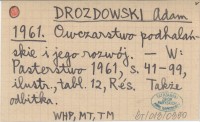 DROZDOWSKI Adam
1961. Owczarstwo podhalań-
skie i jego rozwój. — W:
Pasterstwo 1961, s. 41-99,
ilustr., tabl. 12, Rés. Także
odbitka.
WHP, MT, TM